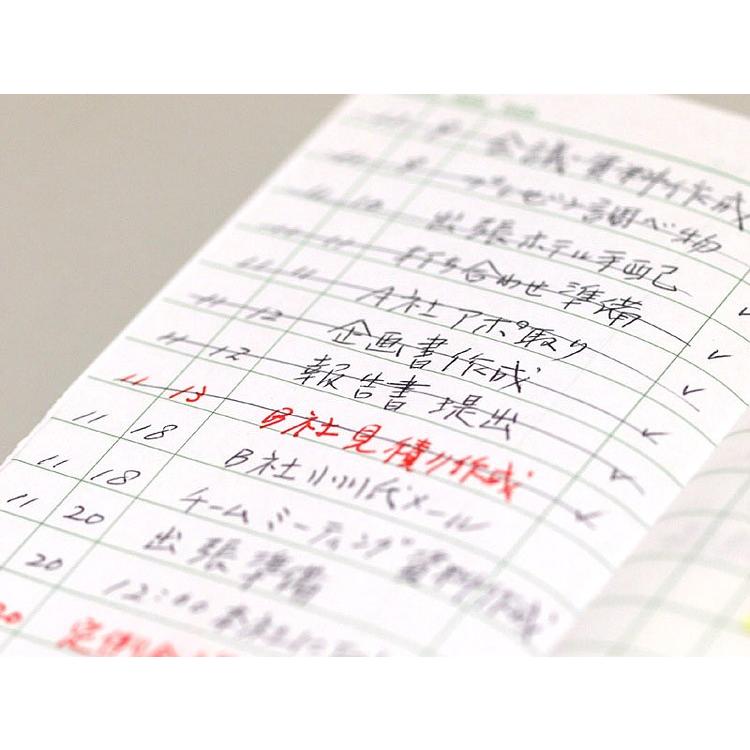 会議資料作成
プレゼント調べ物
11 出張ホテル手配
11 11 打ち合わせ準備
11 11 A社アポ取り
11 12 企画書作成
11 12 報告書提出
11 13 B社見積り作成
11 18 B社小川氏メール
11 18 チームミーティング資料作成
11 20 出張準備
20 12:00
20 定例会